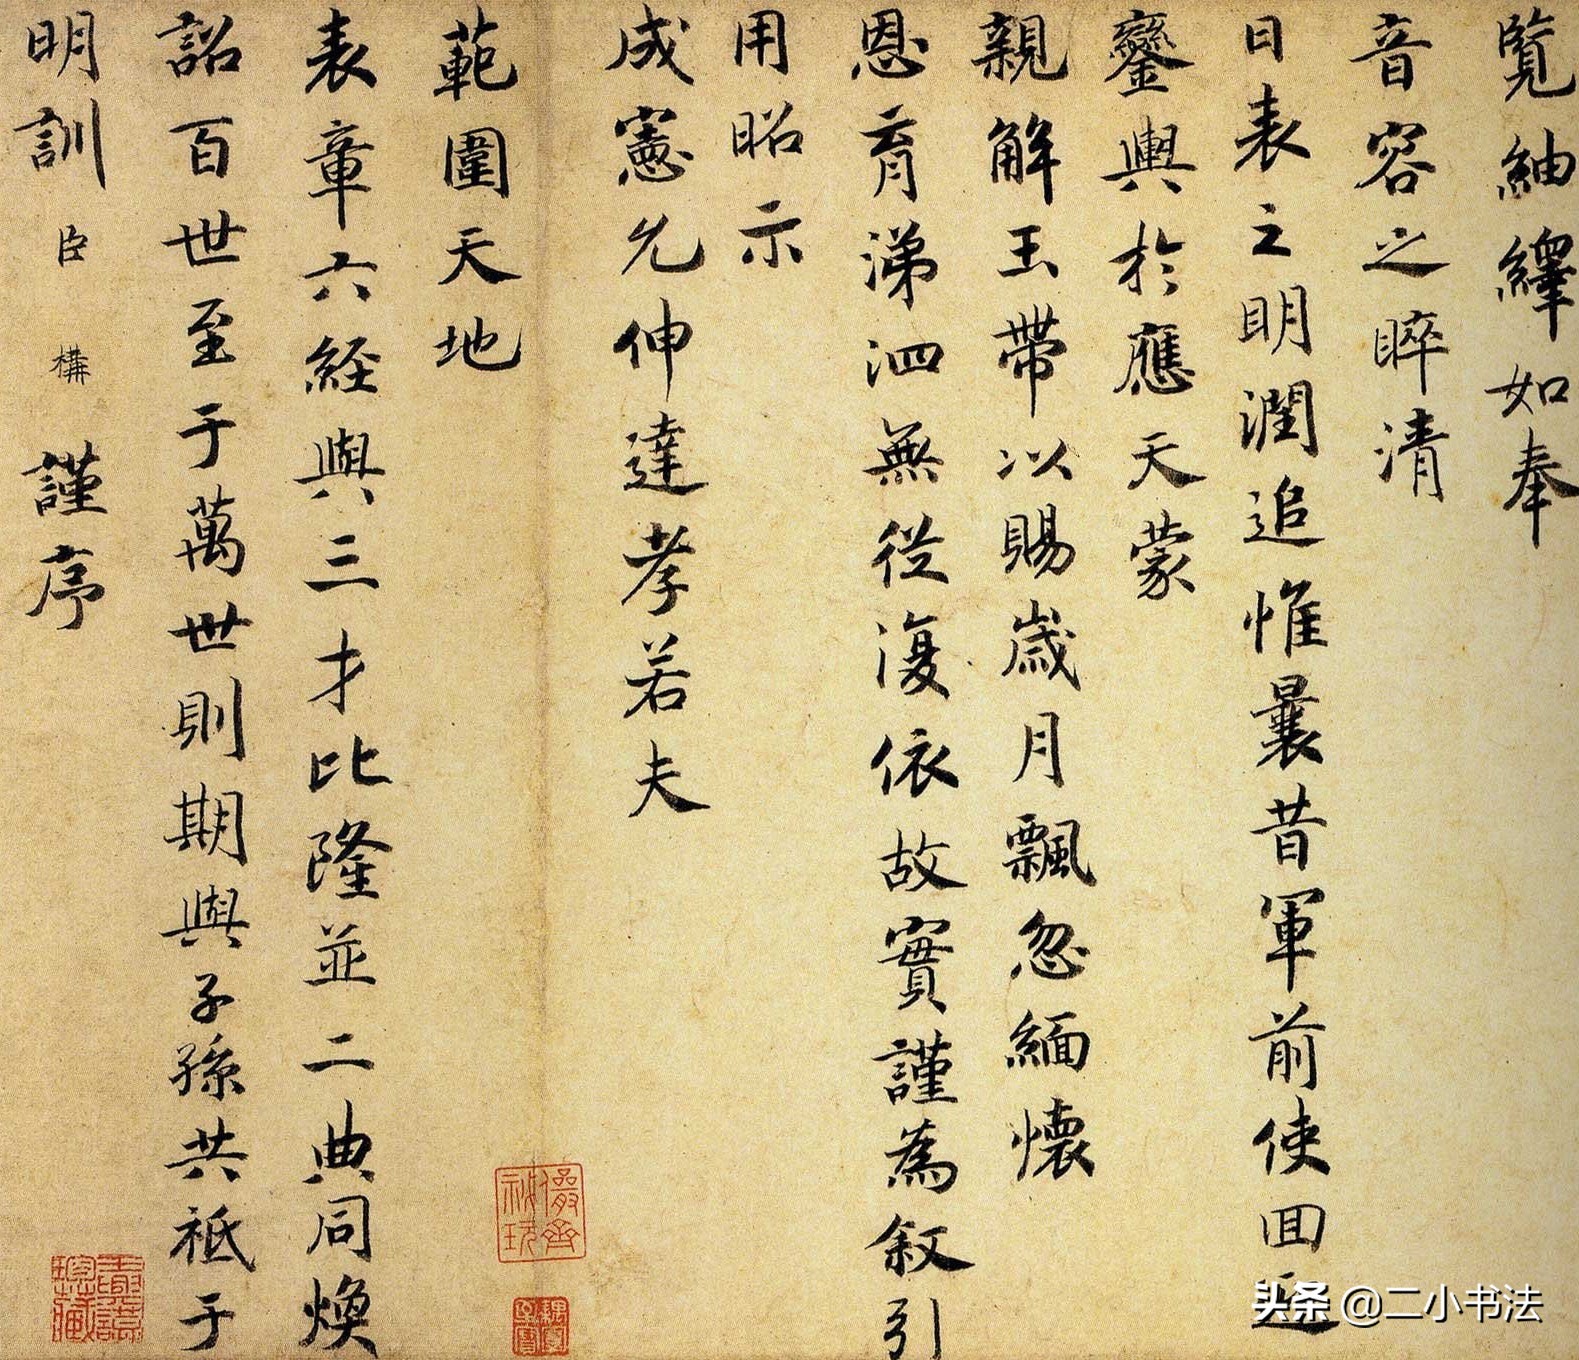 覽紬繹如奉
音容之睟清
日表之明潤追惟曩昔軍前使囬
鑾輿於應天蒙
親解玉帶以賜歲月飄忽緬懷
恩育涕泗無從復依故實謹為叙引
用昭示
成憲允伸達孝若夫
範圍天地
表章六經與三才比隆並二典同煥
詔百世至于萬世則期與子孫共祗于
明訓臣構謹序
儼齋
秘玩
头条 @二小书法